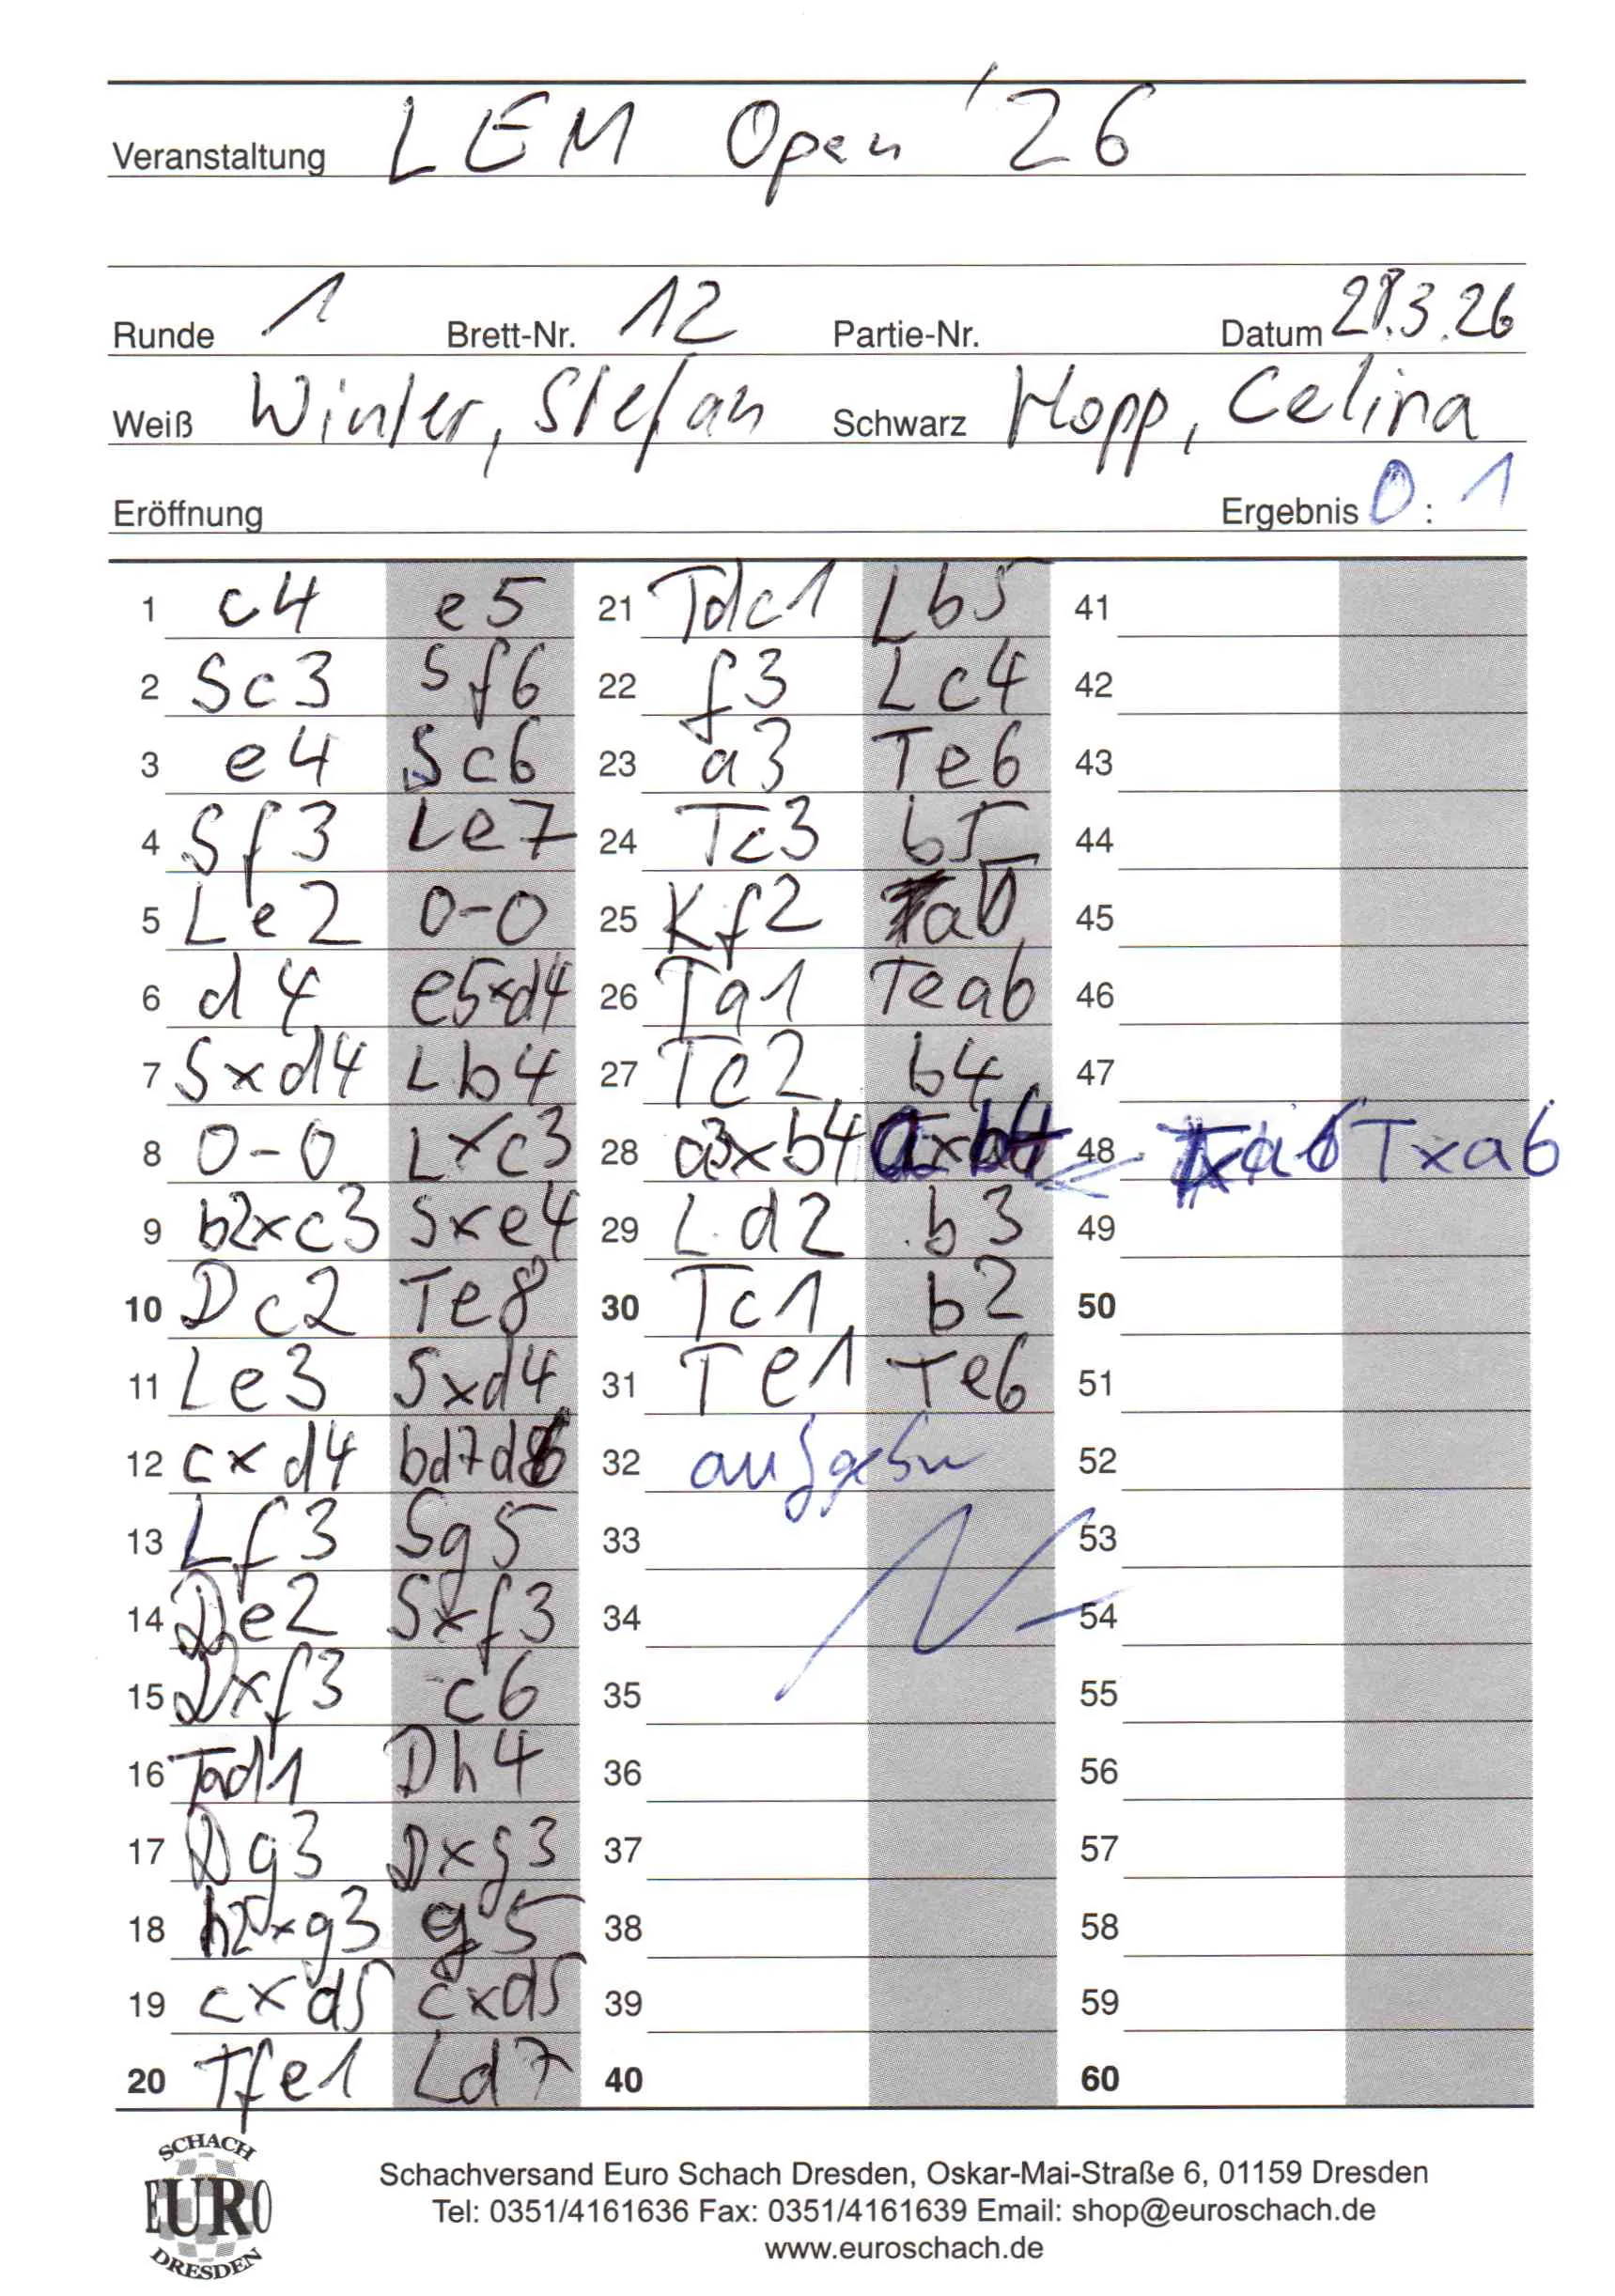 Veranstaltung LEM Open '26
Runde 1 Brett-Nr. 12 Partie-Nr. Datum 28.3.26
Weiß Winter, Stefan Schwarz Hopp, Celina
Eröffnung Ergebnis 0 : 1
1 c4 e5 21 Tdc1 Lb5 41
2 Sc3 Sf6 22 f3 Lc4 42
3 e4 Sc6 23 a3 Te6 43
4 Sf3 Le7 24 Tc3 b5 44
5 Le2 0-0 25 Kf2 45
6 d4 e5xd4 26 Ta1 Tea6 46
7 Sxd4 Lb4 27 Tc2 b4 47
8 0-0 Lxc3 28 a3xb4 48 Txa6
9 b2xc3 Sxe4 29 Ld2 b3 49
10 Dc2 Te8 30 Tc1 b2 50
11 Le3 Sxd4 31 Te1 Te6 51
12 cxd4 32 aufgeben 52
13 Lf3 Sg5 33 53
14 De2 Sxf3 34 54
15 Dxf3 c6 35 55
16 Tad1 Dh4 36 56
17 Dg3 Dxg3 37 57
18 h2xg3 38 58
19 cxd5 cxd5 39 59
20 Tfe1 Ld7 40 60
SCHACH
EURO
DRESDEN
Schachversand Euro Schach Dresden, Oskar-Mai-Straße 6, 01159 Dresden
Tel: 0351/4161636 Fax: 0351/4161639 Email: shop@euroschach.de
www.euroschach.de